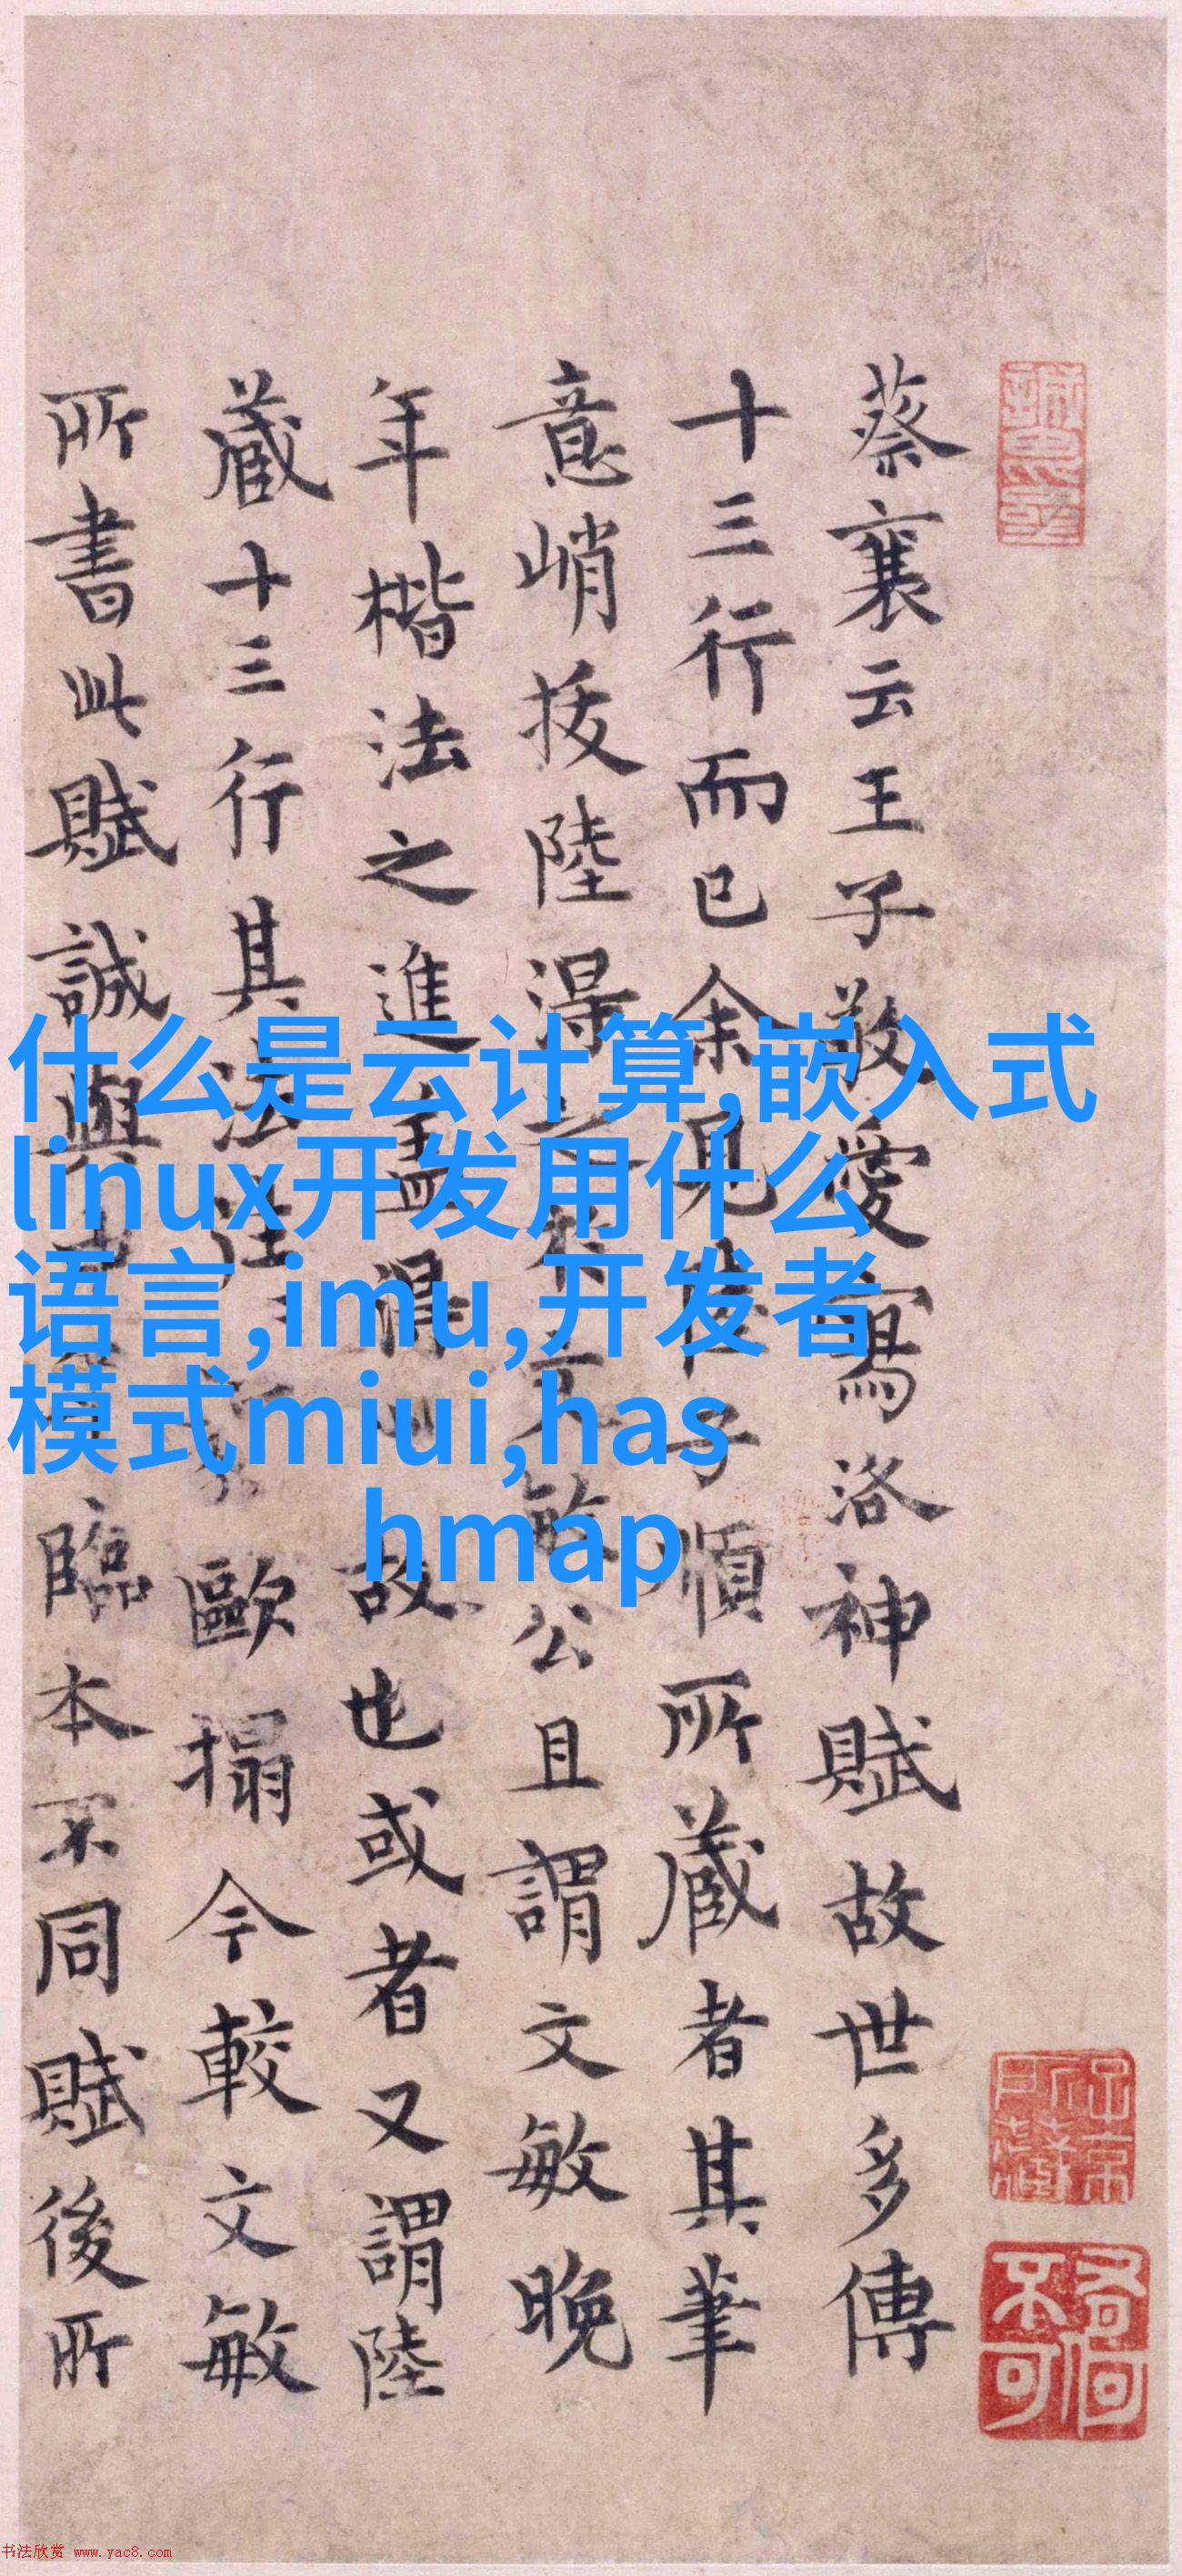 蔡襄云王子敬愛寫洛神賦故世多傳
十三行而已余見 子順所蔵者其筆
意峭拔陸得 敏公且謂文敏晚
年楷法之進盖得 故也或者又謂陸
蔵十三行其法 歐搨今較文敏
所書此賦誠與 臨本不同賦後所
什么是云计算,嵌入式
linux开发用什么
语言,imu,开发者
模式miui,has
hmap
书法欣赏 www.yac8.com